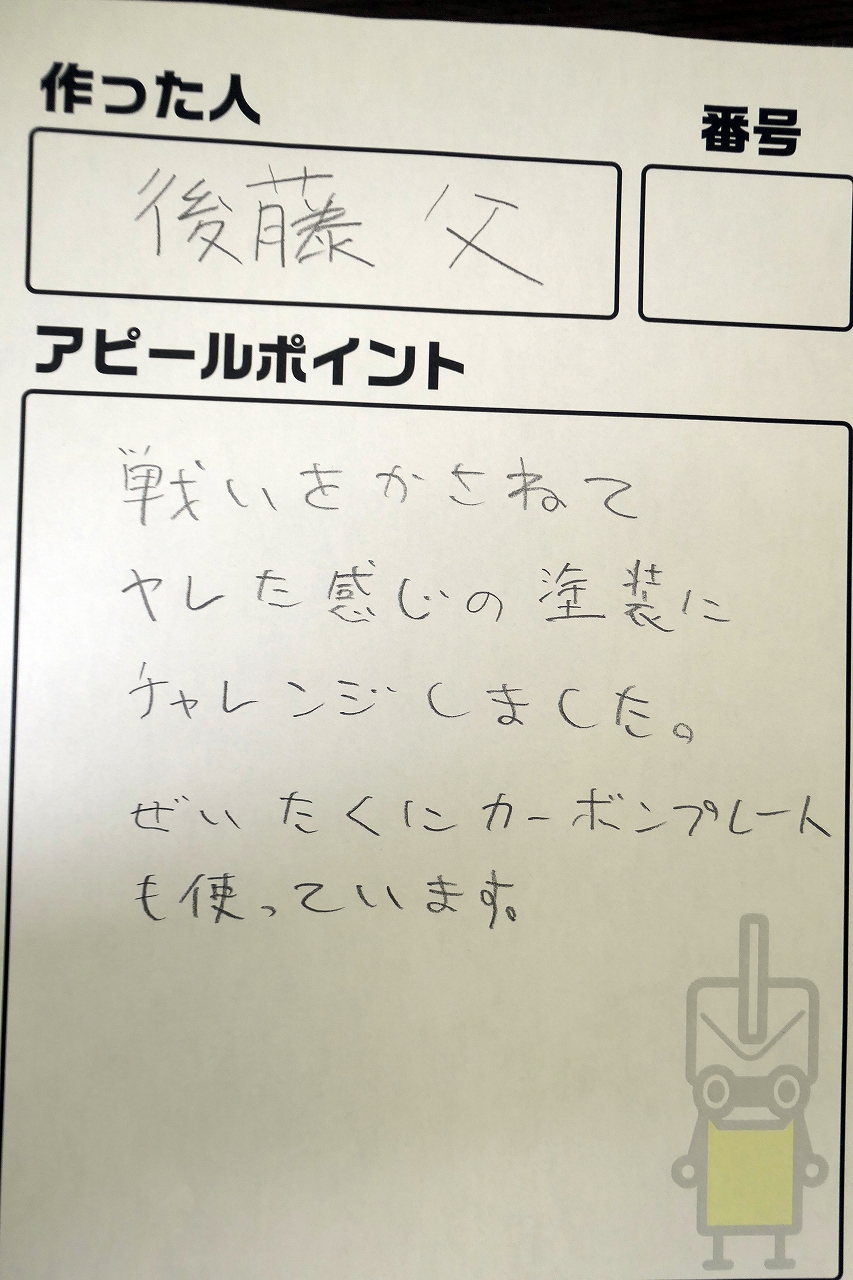 作った人
番号
後藤 父
アピールポイント
戦いをかさねて
ヤレた感じの塗装に
チャレンジしました。
ぜいたくにカーボンプレート
も使っています。